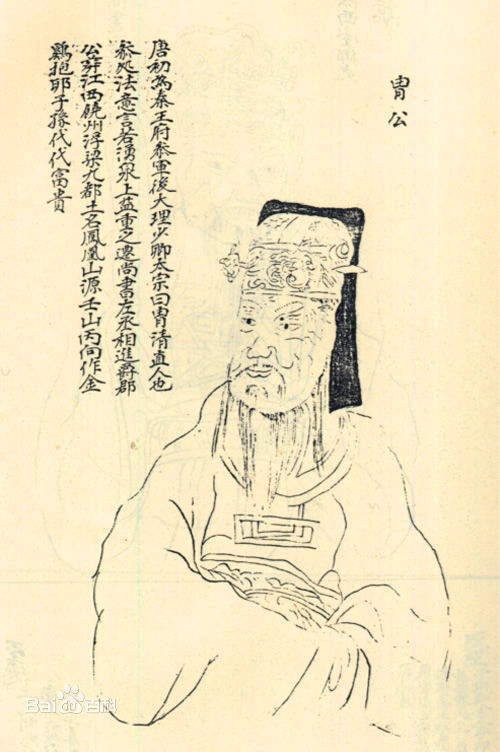 胄公
唐初為秦王府叅軍後大理少卿太宗曰胄清直人也
叅処法意言若湧泉上益重之遷尚書左丞相進爵郡
公葬江西饒州浮梁九都土名鳳凰山源壬山丙向作金
鷄抱耶子孫代代富貴
Bai百科